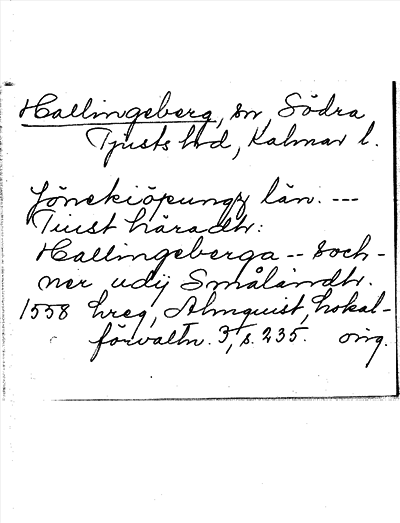 Hallingeberg, sn, Södra
Tjusts hd, Kalmar l.
Jönekiöpungz län. ---
Tiust häradtr:
Hallingeberga -- soch-
ner udij Småländtr.
1558 hreg, Almquist, Lokal-
förvaltn. 3, s. 235. orig.